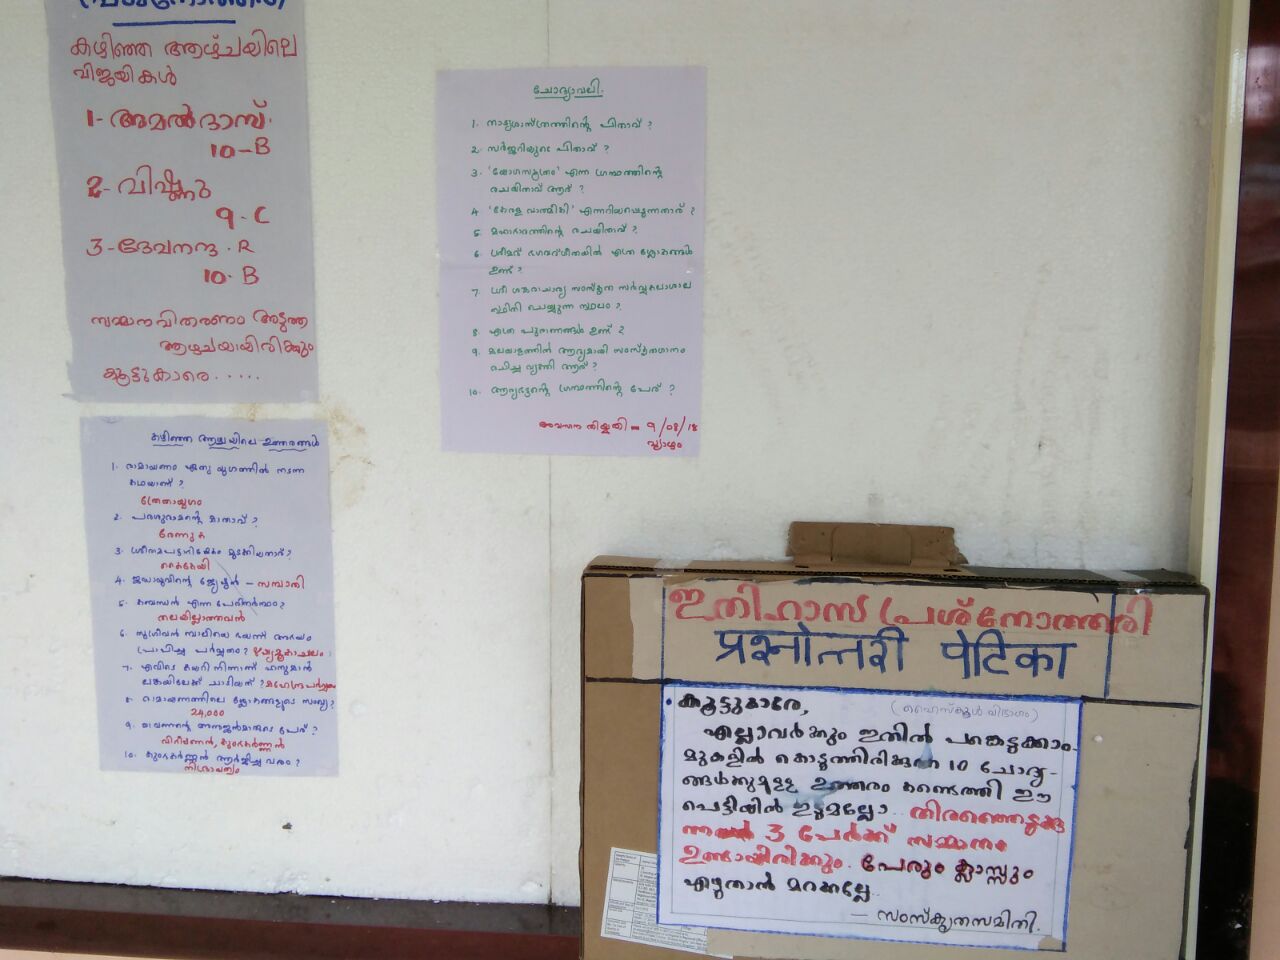 പ്രശ്നോത്തരി
കഴിഞ്ഞ ആഴ്ചയിലെ
വിജയികൾ
1- അമൽ ദാസ്.
10-B
2- വിഷ്ണു
9-C
3- ദേവനന്ദ. R
10-B
സമ്മാനവിതരണം അടുത്ത
ആഴ്ചയായിരിക്കും
കൂട്ടുകാരെ.....
കഴിഞ്ഞ ആഴ്ചയിലെ ഉത്തരങ്ങൾ
1. രാമായണം ഏതു യുഗത്തിൽ നടന്ന
കഥയാണ് ?
ത്രേതായുഗം
2. പരശുരാമന്റെ മാതാവ് ?
രേണുക
3. ശ്രീരാമപട്ടാഭിഷേകം മുടക്കിയതാര് ?
കൈകേയി
4. ജടായുവിന്റെ ജ്യേഷ്ഠൻ - സമ്പാതി
5. കബന്ധൻ എന്ന പേരിനർത്ഥം ?
തലയില്ലാത്തവൻ
6. സുഗ്രീവൻ ബാലിയെ ഭയന്ന് അഭയം
പ്രാപിച്ച പർവ്വതം ? ഋശ്യമൂകാചലം
7. എവിടെ കയറി നിന്നാണ് ഹനുമാൻ
ലങ്കയിലേക്ക് ചാടിയത് ? മഹേന്ദ്രപർവ്വതം
8. രാമായണത്തിലെ ശ്ലോകങ്ങളുടെ സംഖ്യ ?
24,000
9. രാവണന്റെ അനുജൻമാരുടെ പേര് ?
വിഭീഷണൻ, കുംഭകർണ്ണൻ
10. കുംഭകർണ്ണൻ ആർജ്ജിച്ച വരം ?
നിദ്രാവത്വം
ചോദ്യാവലി.
1. നാട്യശാസ്ത്രത്തിന്റെ പിതാവ് ?
2. സർജറിയുടെ പിതാവ് ?
3. 'യോഗസൂത്രം' എന്ന ഗ്രന്ഥത്തിന്റെ
രചയിതാവ് ആര് ?
4. 'കേരള വാത്മീകി' എന്നറിയപ്പെടുന്നതാര് ?
5. മഹാഭാരതത്തിന്റെ രചയിതാവ് ?
6. ശ്രീമദ് ഭഗവദ്ഗീതയിൽ എത്ര ശ്ലോകങ്ങൾ
ഉണ്ട് ?
7. ശ്രീ ശങ്കരാചാര്യ സംസ്കൃത സർവ്വകലാശാല
സ്ഥിതി ചെയ്യുന്ന സ്ഥലം ?
8. എത്ര പുരാണങ്ങൾ ഉണ്ട് ?
9. മലയാളത്തിൻ ആദ്യമായി സംസ്കൃതഗാനം
രചിച്ച വ്യക്തി ആര് ?
10. ആര്യഭട്ടന്റെ ഗ്രന്ഥത്തിന്റെ പേര് ?
അവസാന തിയ്യതി - 9/08/18
വ്യാഴം
ഇതിഹാസ പ്രശ്നോത്തരി
प्रश्नोत्तरी पेटिका
കൂട്ടുകാരേ, (ഹൈസ്കൂൾ വിഭാഗം)
എല്ലാവർക്കും ഇതിൽ പങ്കെടുക്കാം.
മുകളിൽ കൊടുത്തിരിക്കുന്ന 10 ചോദ്യ-
ങ്ങൾക്കുമുള്ള ഉത്തരം കണ്ടെത്തി ഈ
പെട്ടിയിൽ ഇടുമല്ലോ.. തിരഞ്ഞെടുക്കു
ന്ന 3 പേർക്ക് സമ്മാനം
ഉണ്ടായിരിക്കും. പേരും ക്ലാസ്സും
എഴുതാൻ മറക്കല്ലേ..
- സംസ്കൃതസമിതി.